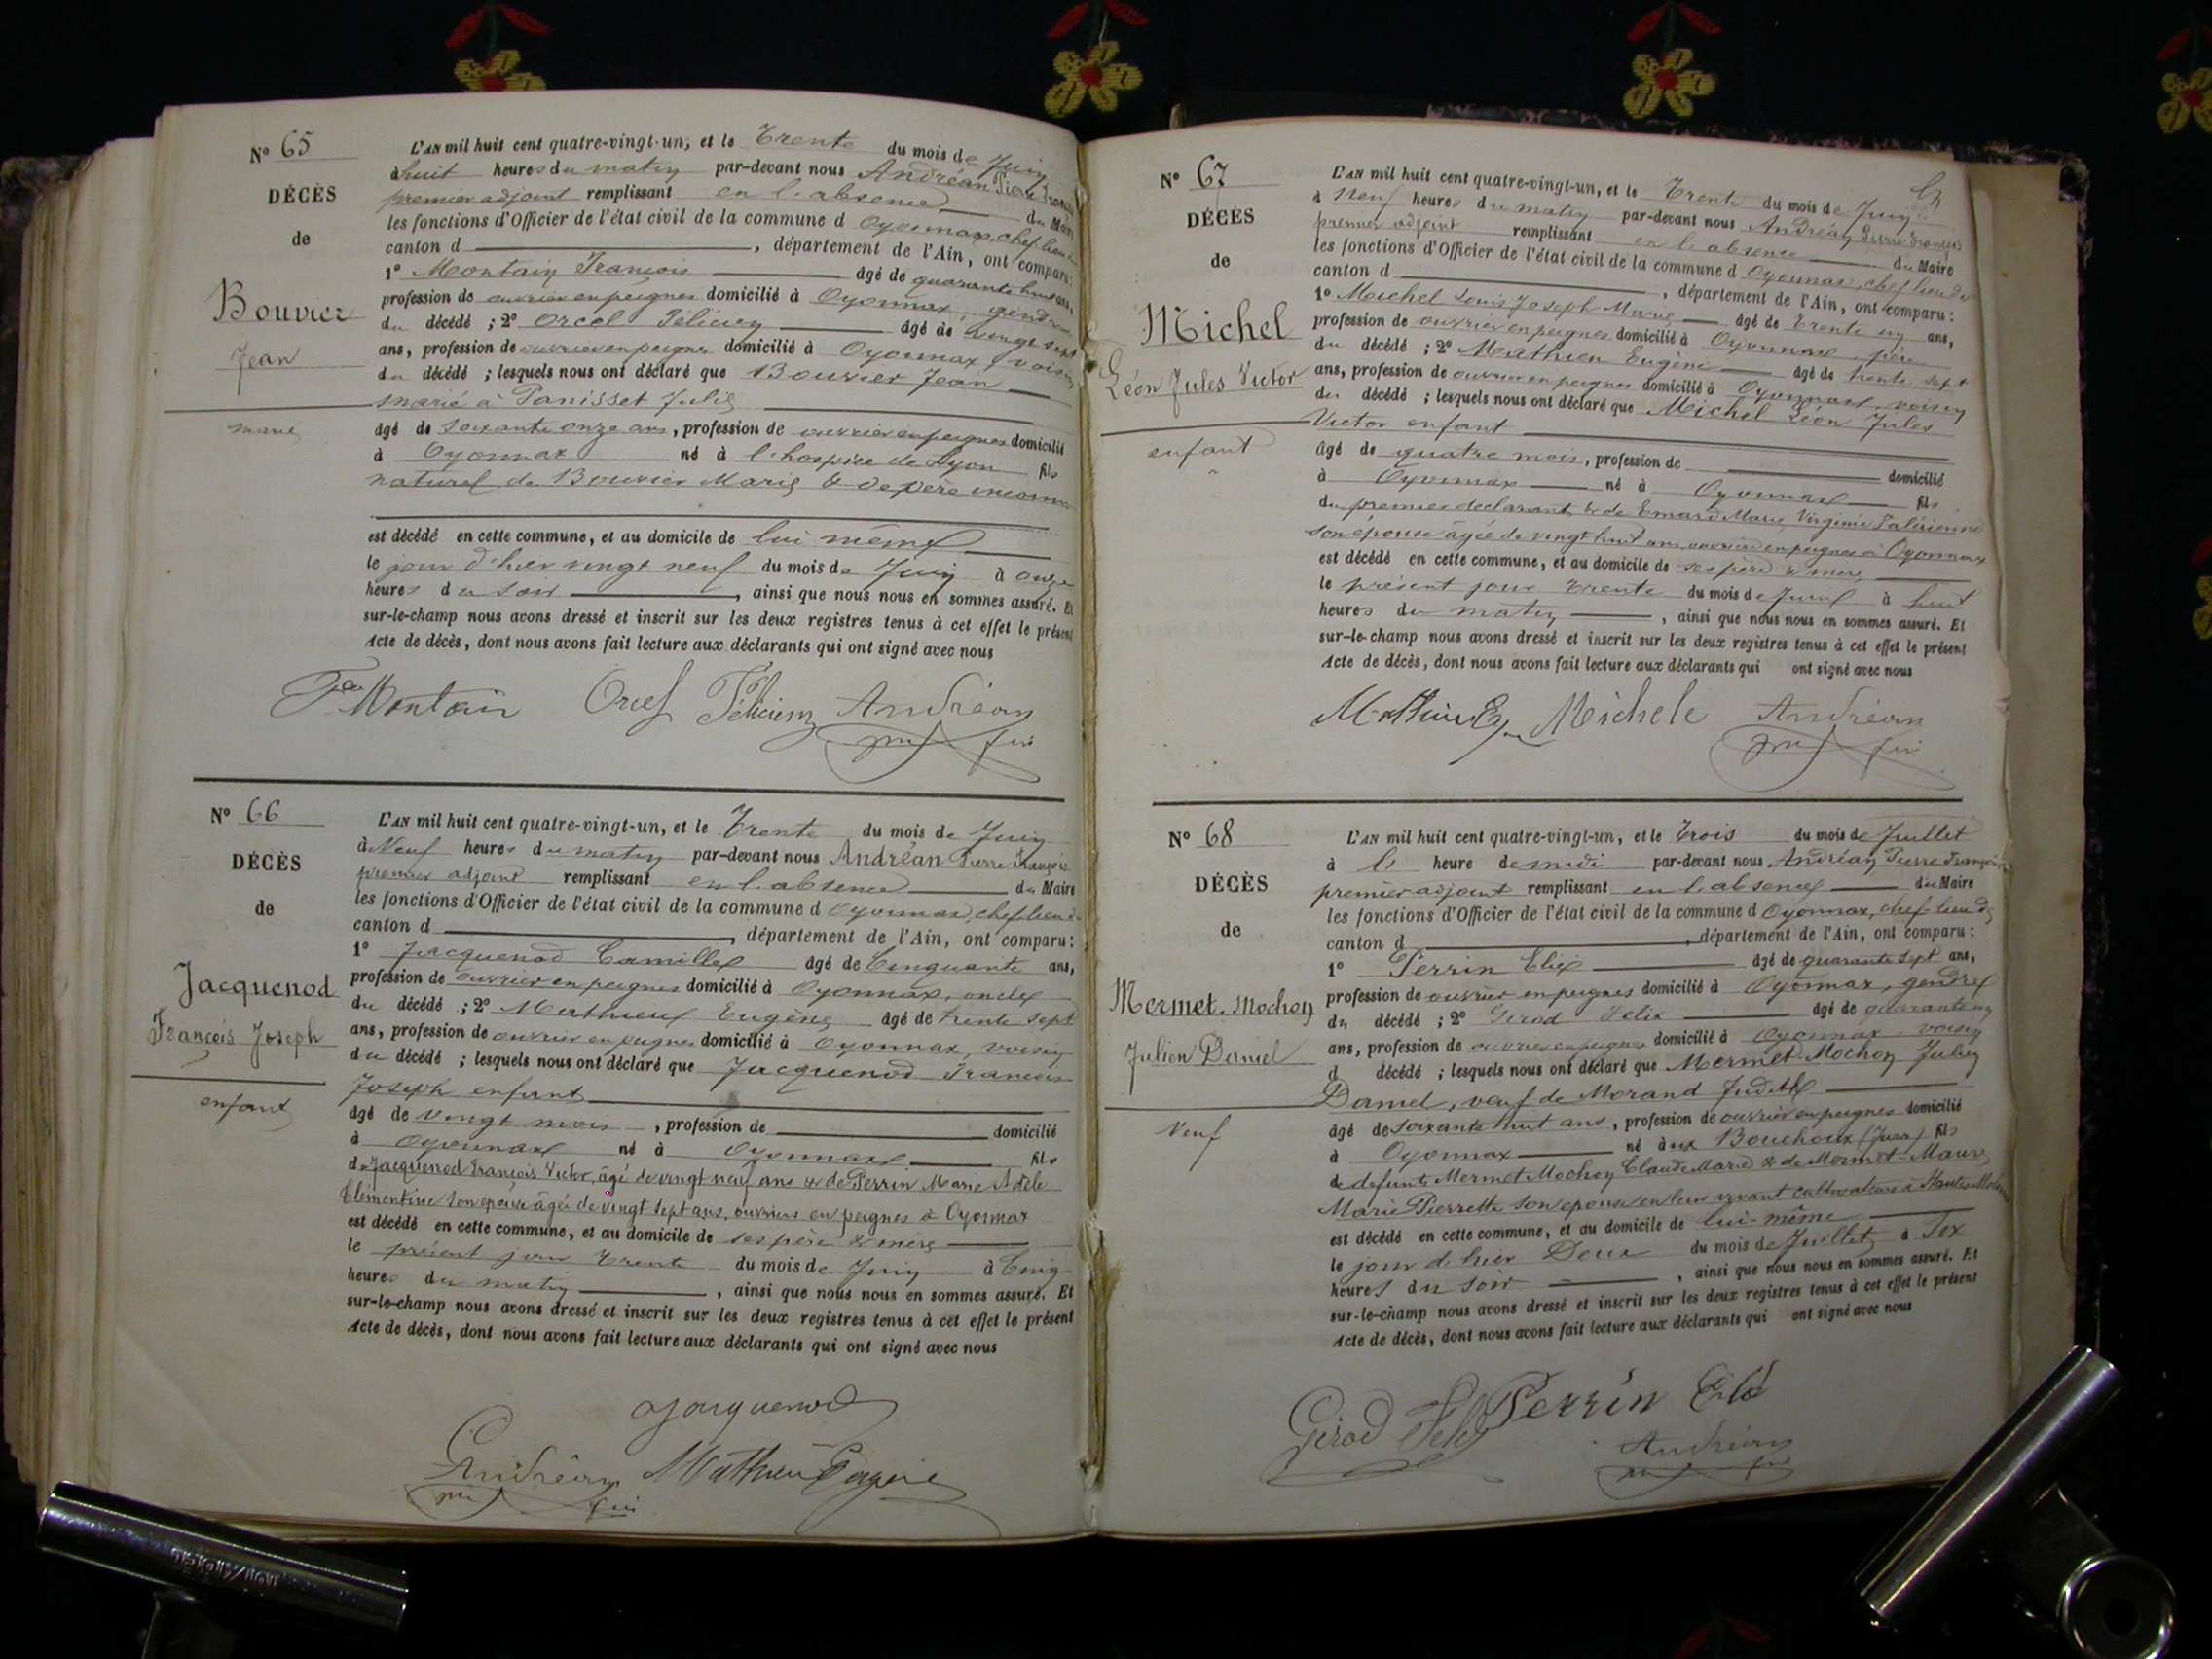 N° 65
DÉCÈS
de
Bouvier
Jean
marié
L'AN mil huit cent quatre-vingt-un, et le Trente du mois de Juin
à huit heures du matin par-devant nous Andréan Pierre François
premier adjoint remplissant en l'absence du Maire
les fonctions d'Officier de l'état civil de la commune d Oyonnax, chef lieu de
canton d , département de l'Ain, ont comparu:
1° Montain François âgé de quarante huit ans,
profession de ouvrier en peignes domicilié à Oyonnax, gendre
du décédé ; 2° Orcel Félicien âgé de vingt sept
ans, profession de ouvrier en peignes domicilié à Oyonnax, voisin
du décédé ; lesquels nous ont déclaré que Bouvier Jean
marié à Panisset Julie
âgé de soixante onze ans, profession de ouvrier en peignes domicilié
à Oyonnax né à l'hospice de Lyon fils
naturel de Bouvier Marie & de père inconnu
est décédé en cette commune, et au domicile de lui même
le jour d'hier vingt neuf du mois de Juin à onze
heures du soir , ainsi que nous nous en sommes assuré. Et
sur-le-champ nous avons dressé et inscrit sur les deux registres tenus à cet effet le présent
Acte de décès, dont nous avons fait lecture aux déclarants qui ont signé avec nous
Montain Orcel Félicien Andréan
N° 66
DÉCÈS
de
Jacquenod
François Joseph
enfant
L'AN mil huit cent quatre-vingt-un, et le Trente du mois de Juin
à Neuf heures du matin par-devant nous Andréan Pierre François
premier adjoint remplissant en l'absence du Maire
les fonctions d'Officier de l'état civil de la commune d Oyonnax, chef lieu de
canton d , département de l'Ain, ont comparu:
1° Jacquenod Camille âgé de Cinquante ans,
profession de ouvrier en peignes domicilié à Oyonnax, oncle
du décédé ; 2° Mathieu Eugène âgé de trente sept
ans, profession de ouvrier en peignes domicilié à Oyonnax, voisin
du décédé ; lesquels nous ont déclaré que Jacquenod François
Joseph enfant
âgé de vingt mois , profession de domicilié
à Oyonnax né à Oyonnax fils
de Jacquenod François Victor, âgé de vingt neuf ans & de Perrin Marie Adèle
Clémentine son épouse âgée de vingt sept ans, ouvriers en peignes à Oyonnax
est décédé en cette commune, et au domicile de ses père & mère
le présent jour trente du mois de Juin à Cinq
heures du matin , ainsi que nous nous en sommes assuré. Et
sur-le-champ nous avons dressé et inscrit sur les deux registres tenus à cet effet le présent
Acte de décès, dont nous avons fait lecture aux déclarants qui ont signé avec nous
Jacquenod
Andréan Mathieu Eugène
N° 67
DÉCÈS
de
Michel
Léon Jules Victor
enfant
L'AN mil huit cent quatre-vingt-un, et le Trente du mois de Juin
à Neuf heures du matin par-devant nous Andréan Pierre François
premier adjoint remplissant en l'absence du Maire
les fonctions d'Officier de l'état civil de la commune d Oyonnax, chef lieu de
canton d , département de l'Ain, ont comparu:
1° Michel Louis Joseph Marie âgé de Trente un ans,
profession de ouvrier en peignes domicilié à Oyonnax père
du décédé ; 2° Mathieu Eugène âgé de trente sept
ans, profession de ouvrier en peignes domicilié à Oyonnax, voisin
du décédé ; lesquels nous ont déclaré que Michel Léon Jules
Victor enfant
âgé de quatre mois, profession de domicilié
à Oyonnax né à Oyonnax fils
du premier déclarant & de Emard Marie Virginie Valérienne
son épouse âgée de vingt huit ans ouvrière en peignes à Oyonnax
est décédé en cette commune, et au domicile de ses père & mère
le présent jour trente du mois de Juin à huit
heures du matin , ainsi que nous nous en sommes assuré. Et
sur-le-champ nous avons dressé et inscrit sur les deux registres tenus à cet effet le présent
Acte de décès, dont nous avons fait lecture aux déclarants qui ont signé avec nous
Mathieu Eg Michele Andréan
N° 68
DÉCÈS
de
Mermet-Mochon
Julien Daniel
Veuf
L'AN mil huit cent quatre-vingt-un, et le Trois du mois de Juillet
à l' heure de midi par-devant nous Andréan Pierre François
premier adjoint remplissant en l'absence du Maire
les fonctions d'Officier de l'état civil de la commune d Oyonnax, chef-lieu de
canton d , département de l'Ain, ont comparu:
1° Perrin Elie âgé de quarante sept ans,
profession de ouvrier en peignes domicilié à Oyonnax, gendre
du décédé ; 2° Girod Félix âgé de quarante un
ans, profession de ouvrier en peignes domicilié à Oyonnax voisin
d décédé ; lesquels nous ont déclaré que Mermet-Mochon Julien
Daniel, veuf de Morand Judith
âgé de soixante huit ans, profession de ouvrier en peignes domicilié
à Oyonnax né aux Bouchoux (Jura) fils
de défunts Mermet Mochon Claude Marie & de Mermet-Maure
Marie Pierrette son épouse en leur vivant cultivateurs à
est décédé en cette commune, et au domicile de lui-même
le jour d'hier Deux du mois de Juillet à Six
heures du soir , ainsi que nous nous en sommes assuré. Et
sur-le-champ nous avons dressé et inscrit sur les deux registres tenus à cet effet le présent
Acte de décès, dont nous avons fait lecture aux déclarants qui ont signé avec nous
Girod Félix Perrin Elie
Andréan